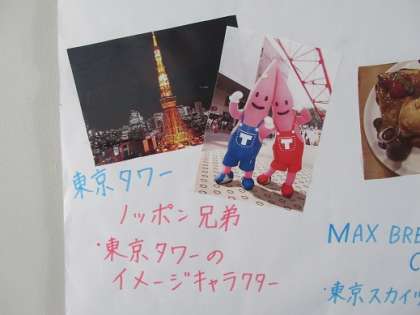 T
T
東京タワー
ノッポン兄弟
・東京タワーの
イメージキャラクター
MAX BRE
C
・東京スカイツ